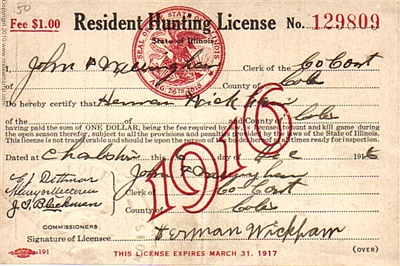 50
Fee $1.00 Resident Hunting License No. 129809
State of Illinois
SEAL OF THE STATE OF ILLINOIS
AUG. 26TH 1818
John Clerk of the Co Court
County of Coles
Do hereby certify that Herman Wickham
of the of County of Coles
having paid the sum of ONE DOLLAR, being the fee required by law is licensed to hunt and kill game during
the open season therefor, subject to all the provisions and penalties provided by the Laws of the State of Illinois.
This license is not transferable and should be upon the person of the holder at all times ready for inspection.
Dated at this of Dec 1916
1916
John
Clerk of Co Court
J. S. Blackmen Coles
COMMISSIONERS
Signature of Licensee Herman Wickham
191 THIS LICENSE EXPIRES MARCH 31, 1917 (OVER)